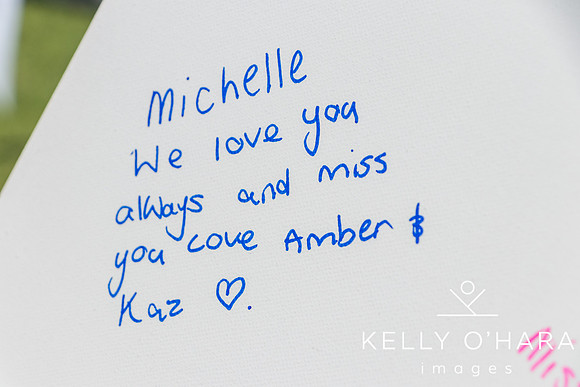 Michelle
We love you
always and miss
you Love Amber &
Kaz ♡.
KELLY O'HARA
images